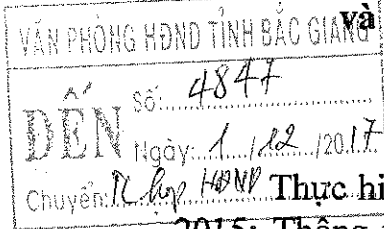 và
VĂN PHÒNG HĐND TỈNH BẮC GIANG
ĐẾN
Số: 4847
Ngày: 1/12/2017
Chuyển: K họp HĐND
Thực hi
2015; Thông